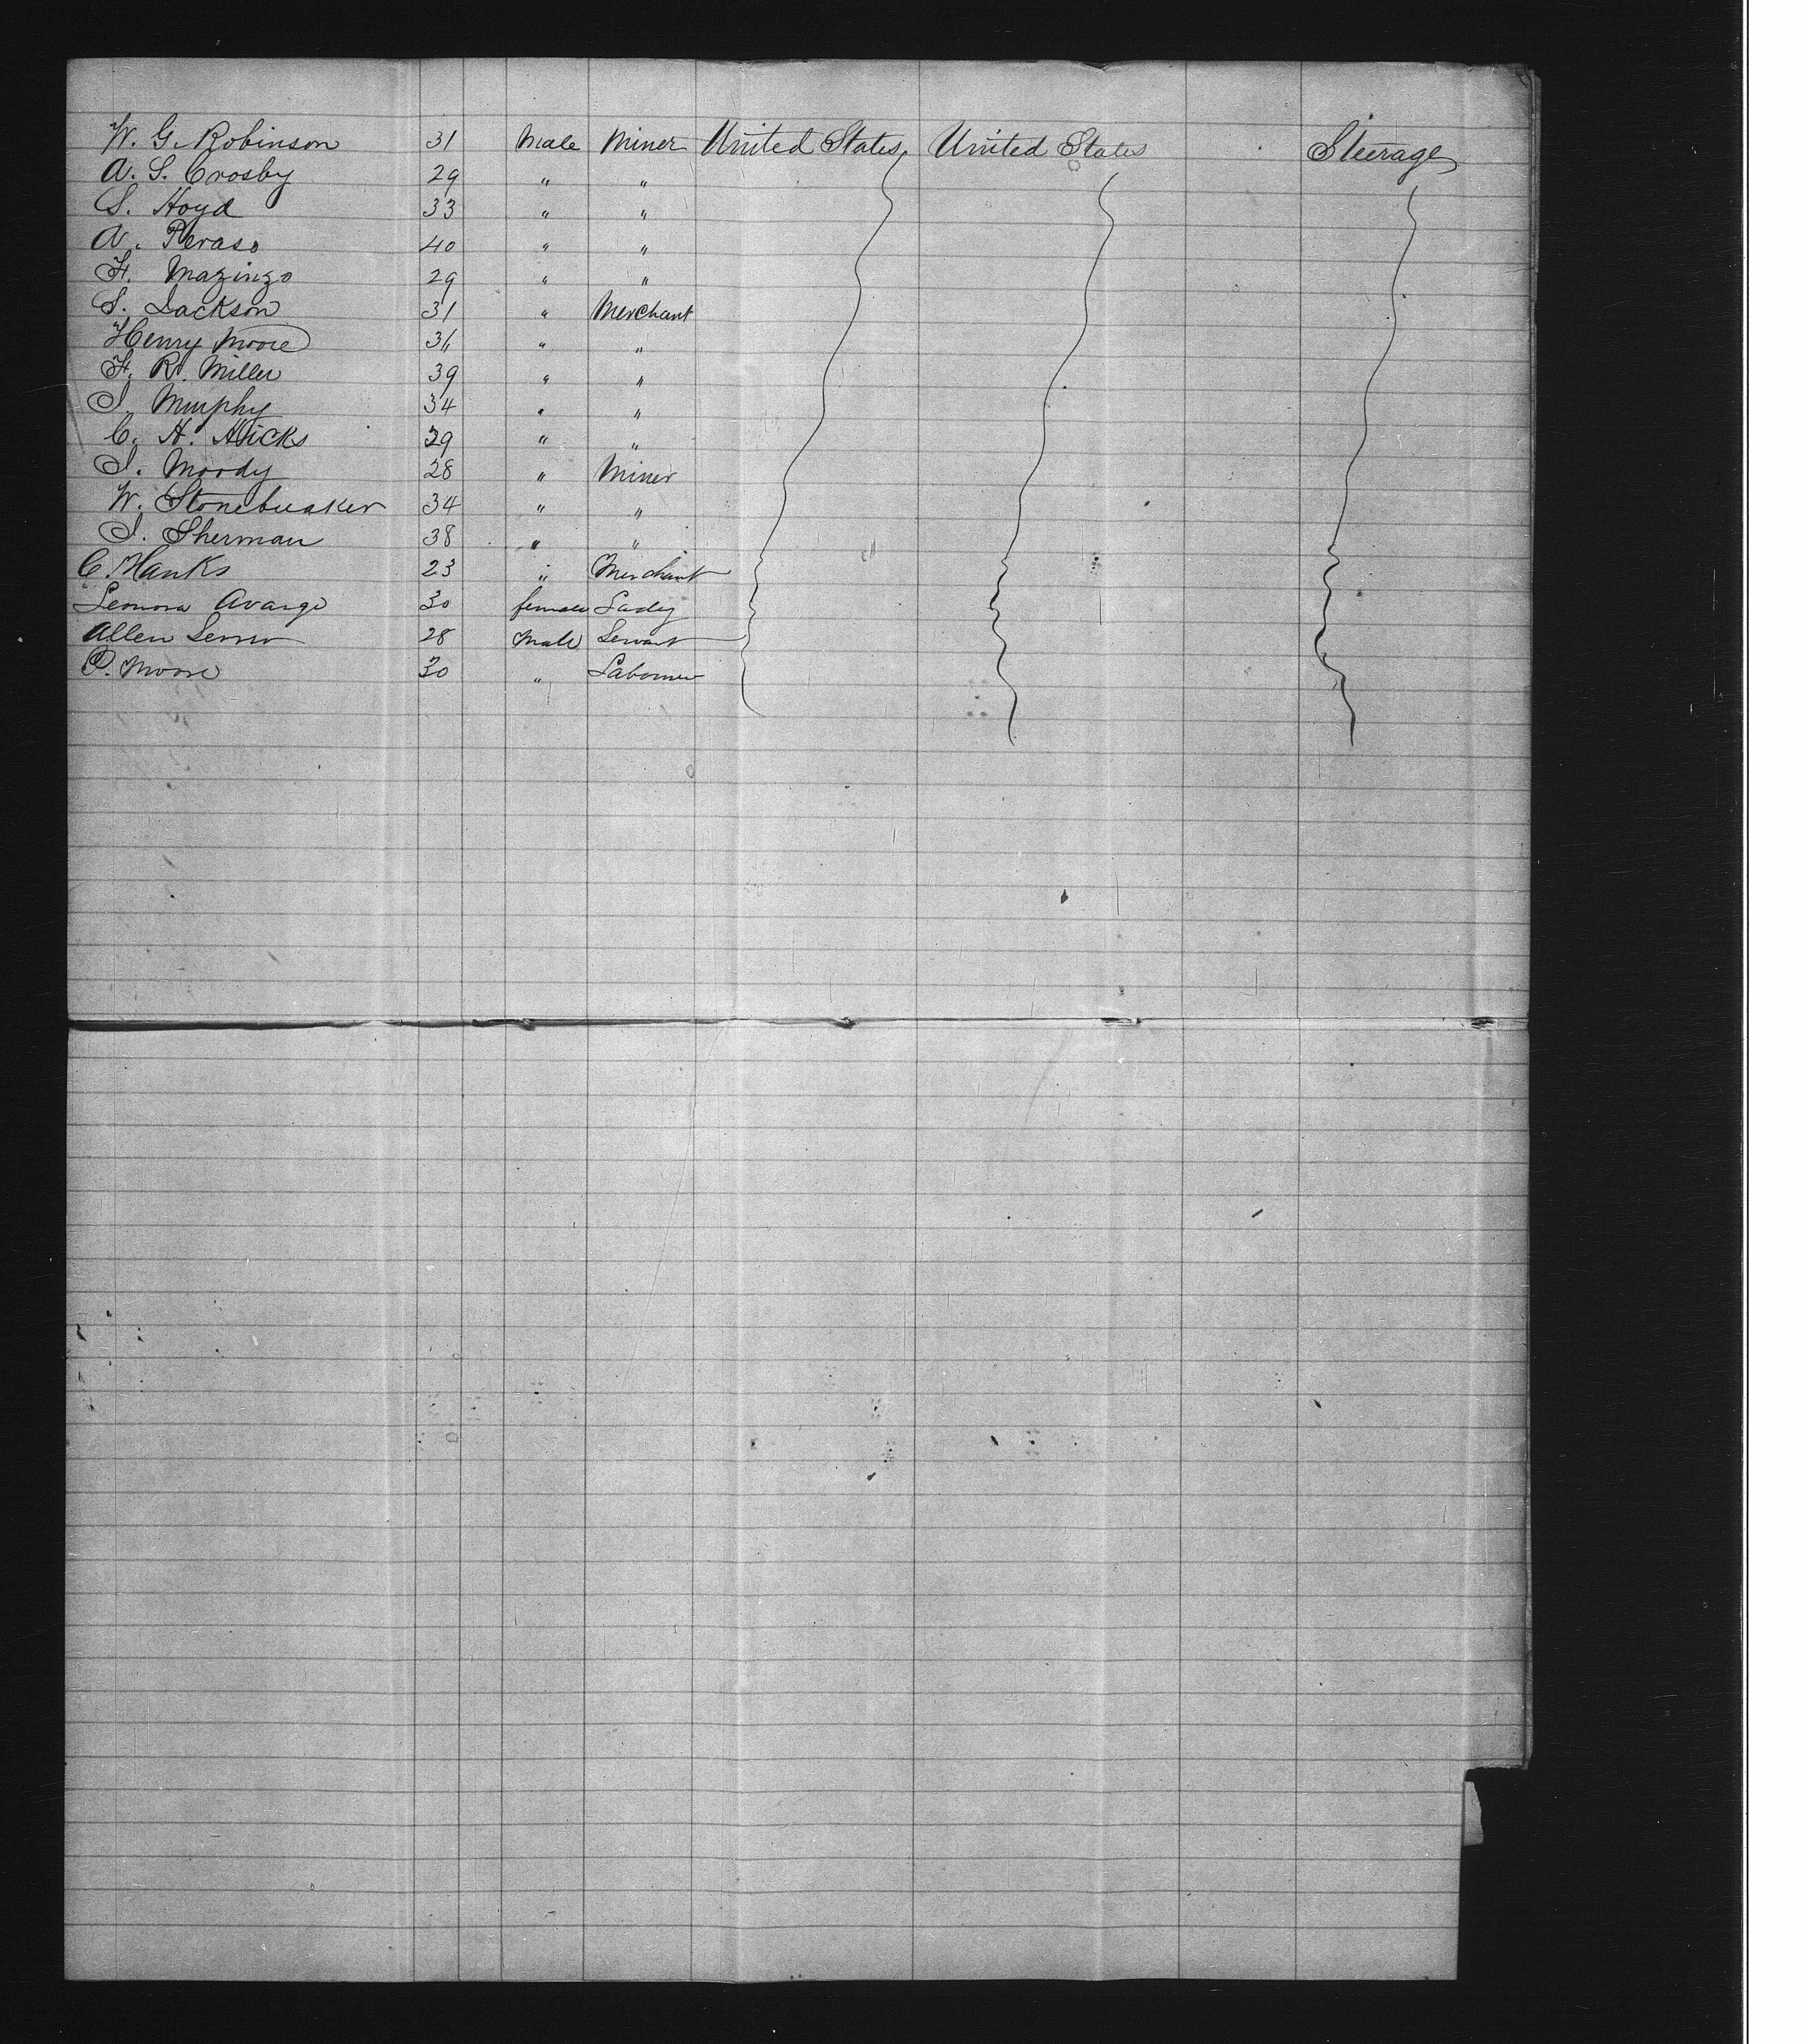 W. G. Robinson 31 Male Miner United States United States Steerage
A. S. Crosby 29 " "
S. Hoyd 33 " "
A. Peraso 40 " "
F. Mazingo 29 " "
S. Jackson 31 " Merchant
Henry Moore 36 " "
F. R. Miller 39 " "
J Murphy 34 " "
C. H. Hicks 39 " "
J. Moody 28 " Miner
W. Stonebreaker 34 " "
J. Sherman 38 " "
C. Hanks 23 " Merchant
Leonora Avango 30 female Lady
Allen 28 Male Servant
P. Moore 30 " Labourer